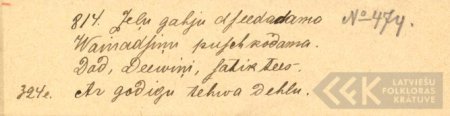 814. Zeļu gahju dseedadamo № 474.
Wainadsiņu puschkodama.
Dod, Deewiņi, satiktees
324e. Ar godigu tehwa dehlu.
LATVIEŠU
FOLKLORAS
KRĀTUVE